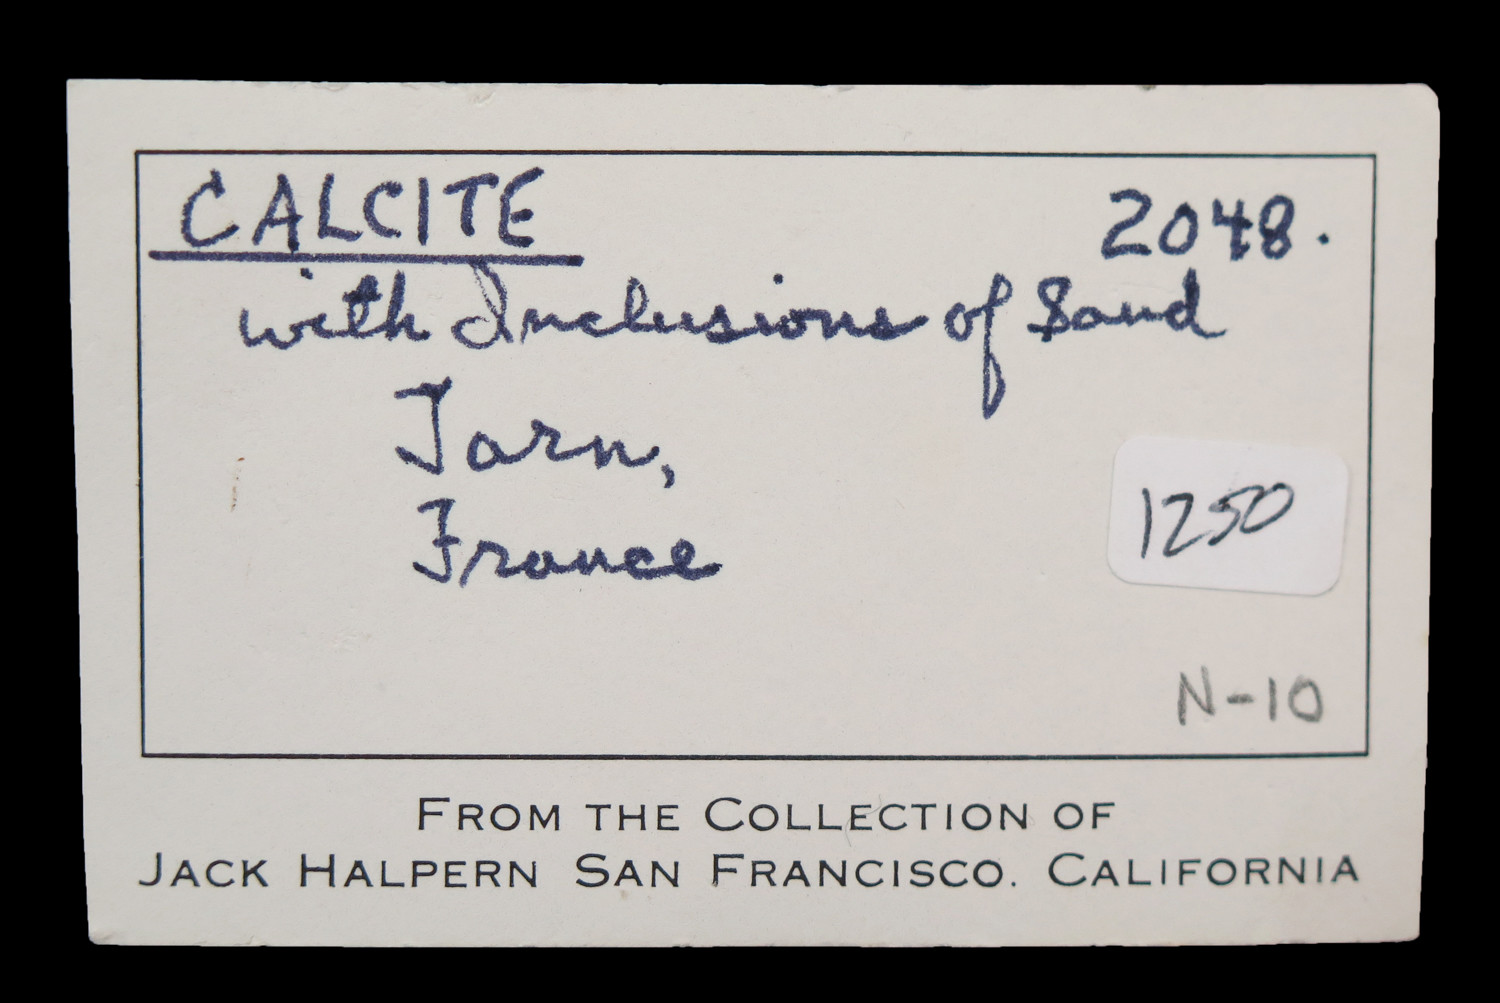 CALCITE 2048.
with Inclusions of Sand
Tarn,
France
1250
N-10
FROM THE COLLECTION OF
JACK HALPERN SAN FRANCISCO. CALIFORNIA